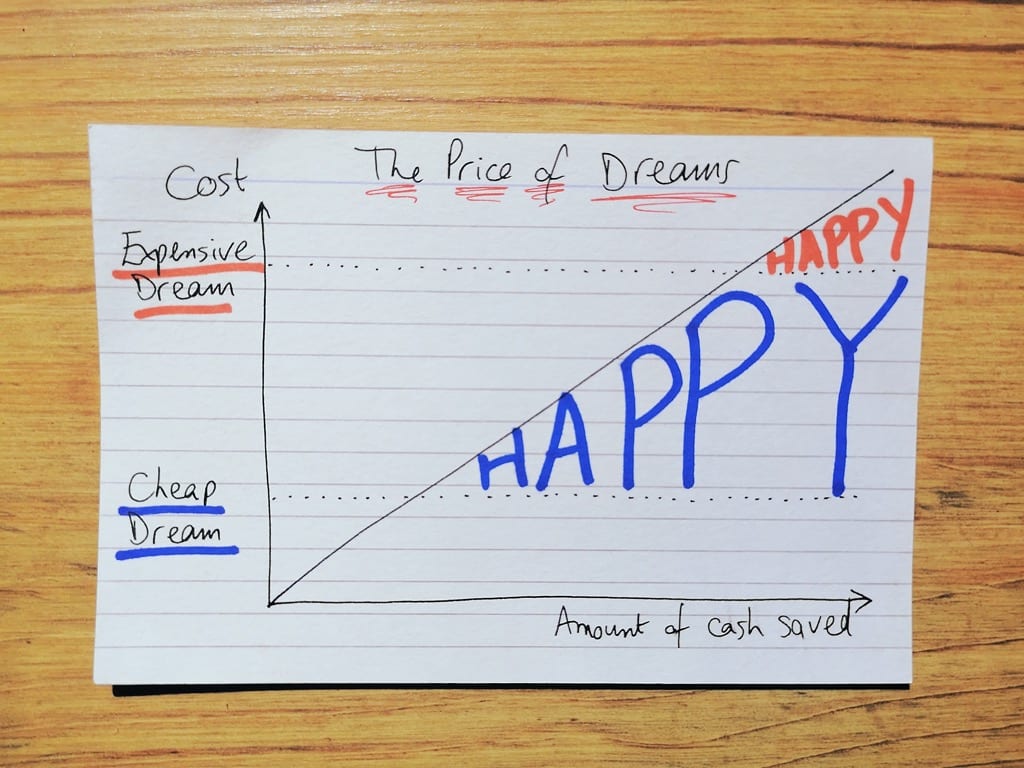 The Price of Dreams
Cost
Expensive
Dream
HAPPY
HAPPY
Cheap
Dream
Amount of cash saved